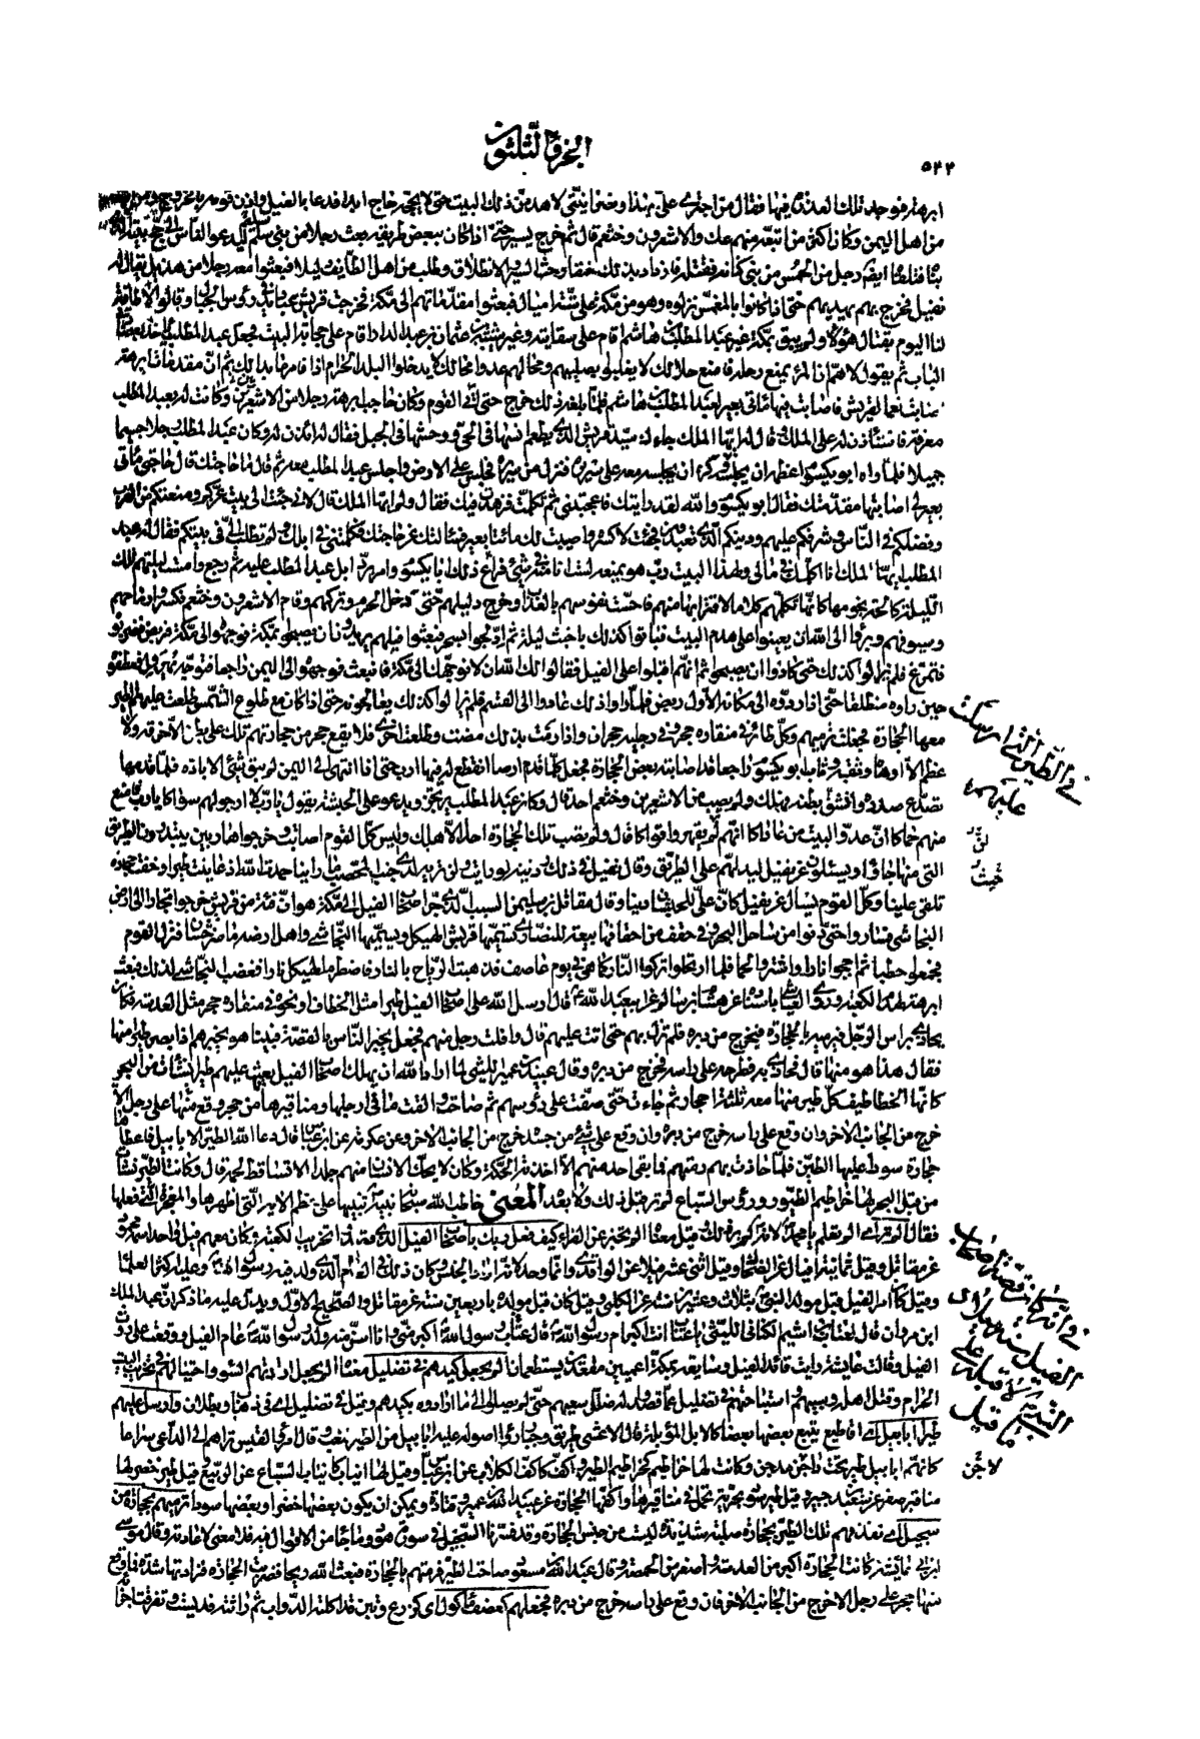 الجزء الثلثون
٥٤٢
ابرهة فوجد تلك العذرة فيها فقال من اجترى على بهذا ونصرانيتي لاهدمن ذلك البيت حتى لا يحجه حاج ابدا فدعا بالفيل واذن قومه بالخروج
من اهل اليمن وكان اكثر من اتبعه منهم عك والاشعرون وخثعم قال ثم خرج يسير حتى اذا كان ببعض طريقه بعث رجلا من بني سليم ليدعو الناس الى حج بيته الذي
بناه فتلقاه ايضا رجل من الحمس من بني كنانة فقتله فازداد بذلك حنقا وحث السير والانطلاق وطلب من اهل الطايف دليلا فبعثوا معه رجلا من هذيل يقال له
نفيل فخرج بهم يهديهم حتى اذا كانوا بالمغمس نزلوه وهو من مكة على ستة اميال فبعثوا مقدماتهم الى مكة فخرجت قريش عباديد في رؤس الجبال وقالوا لا طاقة
لنا اليوم بقتال هؤلاء ولم يبق بمكة غير عبد المطلب بن هاشم اقام على سقايته وغير شيبة بن عثمان بن عبد الدار اقام على حجابة البيت فجعل عبد المطلب ياخذ بعضادتي
الباب ثم يقول لاهم ان المرء يمنع رحله فامنع حلالك لا يغلبوا بصليبهم ومحالهم عدوا محالك لا يدخلوا البلد الحرام اذا فامر ما بدا لك ثم ان مقدمات ابرهة
اصابت نعما لقريش فاصابت فيها مائتي بعير لعبد المطلب بن هاشم فلما بلغه ذلك خرج حتى اتى القوم وكان حاجب ابرهة رجلا من الاشعريين وكانت له بعبد المطلب
معرفة فاستاذن له على الملك وقال له ايها الملك جاءك سيد قريش الذي يطعم انسها في الحي ووحشها في الجبل فقال له ائذن له وكان عبد المطلب رجلا جسيما
جميلا فلما راه ابو يكسوم اعظمه ان يجلسه تحته وكره ان يجلسه معه على سريره فنزل من سريره فجلس على الارض واجلس عبد المطلب معه ثم قال ما حاجتك قال حاجتي مائتا
بعير لي اصابتها مقدمتك فقال ابو يكسوم والله لقد رايتك فاعجبتني ثم تكلمت فزهدت فيك فقال ولم ايها الملك قال لاني جئت الى بيت عزكم ومنعتكم من العرب
وفضلكم في الناس وشرفكم عليهم ودينكم الذي تعبدون فجئت لاكسره واصيبت لك مائتا بعير فسئلتك عن حاجتك فكلمتني في ابلك ولم تطلب الي في بيتكم فقال له عبد
المطلب ايها الملك انا اكلمك في مالي ولهذا البيت رب هو يمنعه لست انا منه في شيء فراع ذلك ابا يكسوم وامر برد ابل عبد المطلب عليه ثم رجع وامست ليلتهم تلك
الليلة كالحة نجومها كانها تكلمهم كلاما لاقترابها منهم فاحست نفوسهم بالعذاب وخرج دليلهم حتى دخل الحرم وتركهم وقام الاشعرون وخثعم فكسروا رماحهم
وسيوفهم وبرؤا الى الله ان يعينوا على هدم البيت فباتوا كذلك باخبث ليلة ثم ادلجوا بسحر فبعثوا فيلهم يريدون ان يصبحوا بمكة فوجهوه الى مكة فربض فضربوه
فتمرغ فلم يزالوا كذلك حتى كادوا ان يصبحوا ثم انهم اقبلوا على الفيل فقالوا لك الله ان لا نوجهك الى مكة فانبعث فوجهوه الى اليمن راجعا فتوجه يهرول فعطفوه
حين راوه منطلقا حتى اذا ردوه الى مكانه الاول ربض فلما راوا ذلك عادوا الى القسم فلم يزالوا كذلك يعالجونه حتى اذا كان مع طلوع الشمس طلعت عليهم الطير
معها الحجارة فجعلت ترميهم وكل طائر في منقاره حجر وفي رجليه حجران واذا رمت بذلك مضت وطلعت اخرى فلا يقع حجر من حجارتهم تلك على بطن الا خرقه ولا
عظم الا اوهاه وثقبه وثاب ابو يكسوم راجعا قد اصابته بعض الحجارة فجعل كلما قدم ارضا انقطع له فيها ارب حتى اذا انتهى الى اليمن لم يبق شيء الا باده فلما قدمها
تصدع صدره وانشق بطنه فهلك ولم يصب من الاشعريين وخثعم احد قال وكان عبد المطلب يرتجز ويدعو على الحبشة يقول يا رب لا ارجو لهم سواكا يا رب فامنع
منهم حماكا ان عدو البيت من عاداكا انهم لم يقهروا قواكا قال ولم يصب تلك الحجارة احدا الا هلك وليس كل القوم اصابت وخرجوا هاربين يبتدرون الطريق
التي منها جاؤا ويسئلون عن نفيل ليدلهم على الطريق وقال نفيل في ذلك ردينة لو رايت ولن تريه لدى جنب المحصب ما راينا حمدت الله اذ عاينت طيرا وخفت حجارة
تلقى علينا وكل القوم يسال عن نفيل كان علي للحبشان دينا وقال مقاتل بن سليمن السبب الذي جر اصحاب الفيل الى مكة هو ان فتية من قريش خرجوا تجارا الى ارض
النجاشي فساروا حتى دنوا من ساحل البحر وفي حقف من احقافها بيعة للنصارى تسميها قريش الهيكل ويسميها النجاشي واهل ارضه ماسرخسان فنزل القوم
فجمعوا حطبا ثم اججوا نارا واشتووا لحما فلما ارتحلوا تركوا النار كما هي في يوم عاصف فذهبت الرياح بالنار فاضطرم الهيكل نارا فغضب النجاشي لذلك فبعث
ابرهة لهدم الكعبة وروى العياشي باسناده عن هشام بن سالم عن ابي عبد الله ع قال ارسل الله على اصحاب الفيل طيرا مثل الخطاف او نحوه في منقاره حجر مثل العدسة فكان
يحاذي براس الرجل فيرميه بالحجارة فيخرج من دبره فلم تزل بهم حتى اتت عليهم قال وافلت رجل منهم فجعل يخبر الناس بالقصة فبينا هو يخبرهم اذ ابصر طيرا منها
فقال هذا هو منها قال فحاذى به فطرحه على راسه فخرج من دبره وقال عبيد بن عمير الليثي لما اراد الله ان يهلك اصحاب الفيل بعث عليهم طيرا نشات من البحر
كانها الخطاطيف كل طير منها معه ثلثة احجار ثم جاءت حتى صفت على رؤسهم ثم صاحت والقت ما في ارجلها ومناقيرها فما من حجر وقع منها على رجل الا
خرج من الجانب الاخر وان وقع على راسه خرج من دبره وان وقع على شيء من جسده خرج من الجانب الاخر وعن عكرمة عن ابن عباس قال دعا الله الطير الابابيل فاعطاها
حجارة سودا عليها الطين فلما حاذت بهم رمتهم فما بقي احد منهم الا اخذته الحكة وكان لا يحك الانسان منهم جلده الا تساقط لحمه قال وكانت الطير نشات
من قبل البحر لها خراطيم الطيور ورؤس السباع لم تر قبل ذلك ولا بعده المعنى خاطب الله سبحانه نبيه تنبيها على عظم الاية التي اظهرها والمعجزة التي فعلها
فقال الم تر اي الم تعلم يا محمد لانه لم ير ذلك وقيل معناه الم تخبر عن الفراء كيف فعل ربك باصحاب الفيل الذين قصدوا تخريب الكعبة وكان معهم فيل واحد اسمه محمود
عن مقاتل وقيل ثمانية افيال عن الضحاك وقيل اثنى عشر فيلا عن الواقدي وانما وحد لانه اراد الجنس وكان ذلك في العام الذي ولد فيه رسول الله ص وعليه اكثر العلماء
وقيل كان امر الفيل قبل مولد النبي ص بثلاث وعشرين سنة عن الكلبي وقيل كان قبل مولده باربعين سنة عن مقاتل والصحيح الاول ويدل عليه ما ذكر ان عبد الملك
ابن مروان قال لعتاب بن اشيم الكناني الليثي يا عتاب انت اكبر ام رسول الله ص قال عتاب رسول الله ص اكبر مني وانا اسن منه ولد رسول الله ص عام الفيل ووقفت على روث
الفيل وقالت عايشة رايت قائد الفيل وسايقه بمكة اعميين مقعدين يستطعمان الم يجعل كيدهم في تضليل معناه الم يجعل ارادتهم السوء واحتيالهم في تخريب البيت
الحرام وقتل اهله وسبيهم واستباحتهم في تضليل عما قصدوا له ضل سعيهم حتى لم يصلوا الى ما ارادوه بكيدهم وقيل في تضليل اي في ذهاب وبطلان وارسل عليهم
طيرا ابابيل اي اقاطيع يتبع بعضها بعضا كالابل المؤبلة قال الاعشى طريق وجبار رواء اصوله عليه ابابيل من الطير تنعب وقال امرؤ القيس تراهم الى الداعي سراعا
كانهم ابابيل طير تحت دجن مدجن وكانت لها خراطيم كخراطيم الطير واكف كاكف الكلاب عن ابن عباس وقيل لها انياب كانياب السباع عن الربيع وقيل طير خضر لها
مناقير صفر عن سعيد بن جبير وقيل طير سود بحرية تحمل في مناقيرها واكفها الحجارة عن عبيد بن عمير وقتادة ويمكن ان يكون بعضها خضرا وبعضها سودا ترميهم بحجارة من
سجيل اي تقذفهم تلك الطير بحجارة صلبة شديدة ليست من جنس الحجارة وقد فسرنا السجيل في سورة هود وما جاء من الاقوال فيه فلا معنى لاعادته وقال موسى
ابن ابي عايشة كانت الحجارة اكبر من العدسة واصغر من الحمصة وقال عبد الله بن مسعود صاحت الطير فرمتهم بالحجارة فبعث الله ريحا فضربت الحجارة فزادتها شدة فما وقع
منها حجر على رجل الا خرج من الجانب الاخر فان وقع على راسه خرج من دبره فجعلهم كعصف ماكول اي كزرع وتبن قد اكلته الدواب ثم راثته فديست وتفرقت اجزاؤه
في الطير التي ارسلت
عليهم
لن
خبث
في انه كانت قصة اصحاب
الفيل سنة ميلاد
النبي ص وقيل قبله على
ما قيل
لاجن